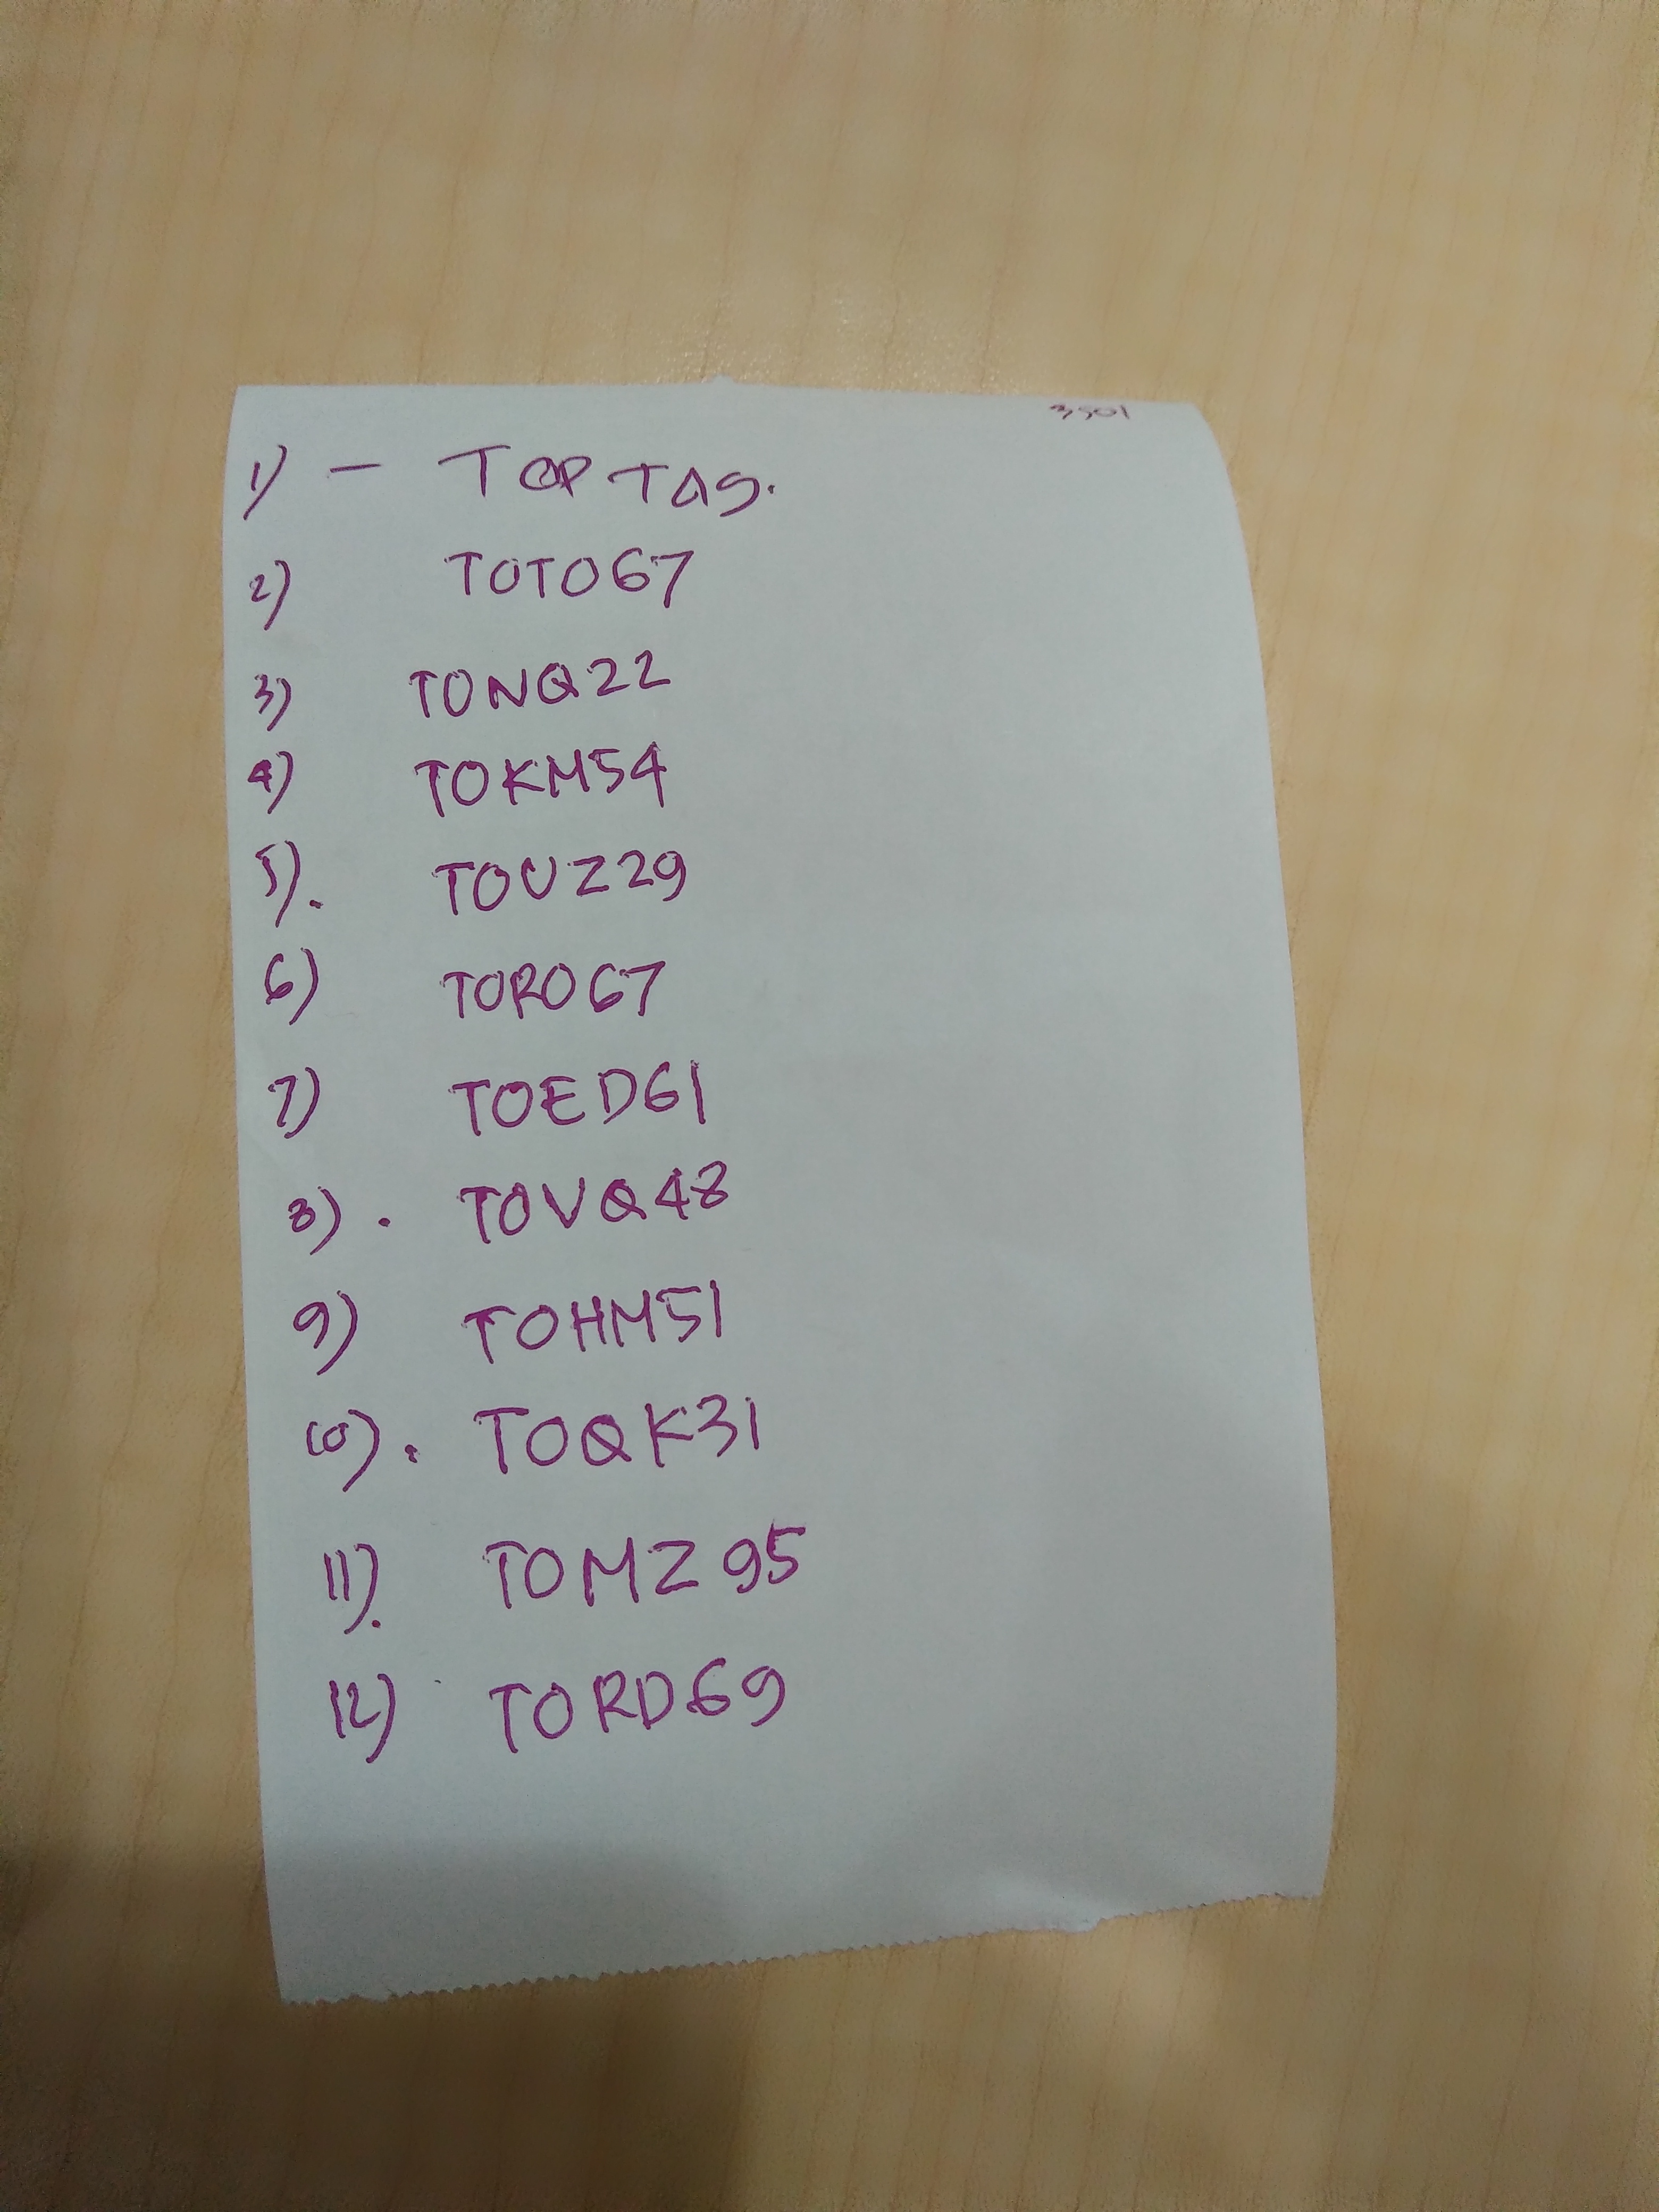 3501
1) - TOP TAG.
2) TOTO67
3) TONQ22
4) TOKM54
5). TOUZ29
6) TORO67
7) TOED61
8). TOVQ48
9) TOHM51
10). TOQK31
11). TOMZ95
12) TORD69